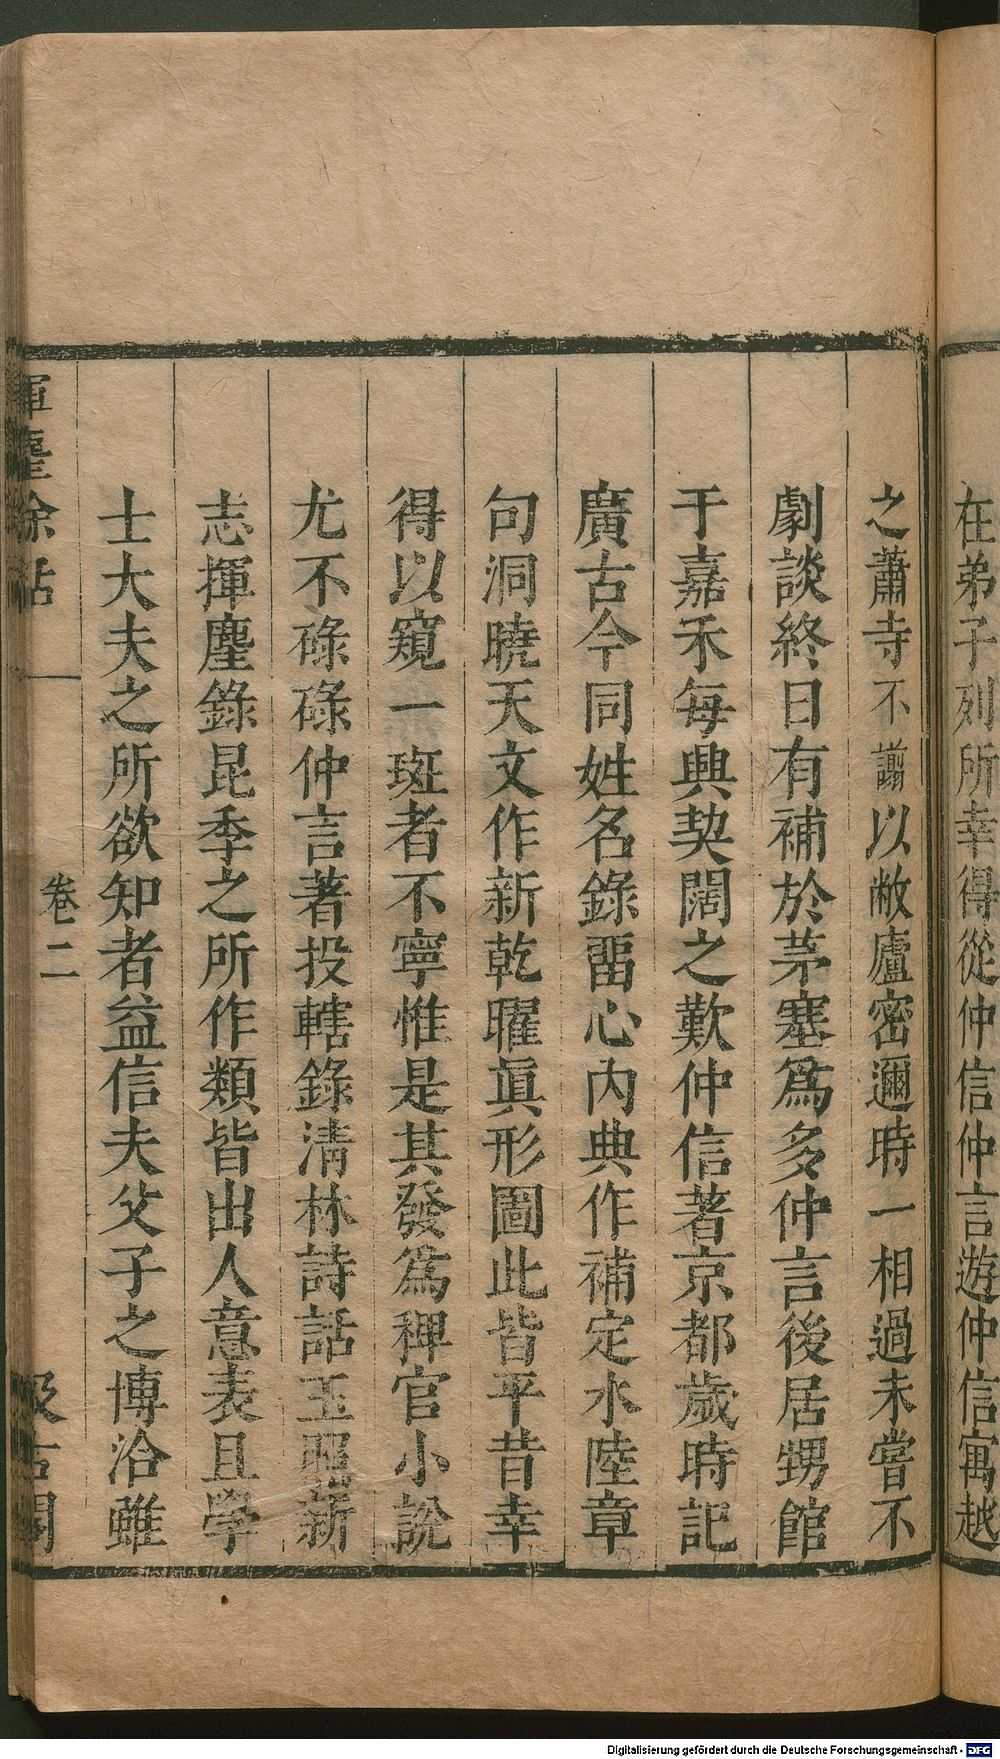 在弟子列所幸得從仲信仲言遊仲信寓越
之蕭寺不譾以敝廬密邇時一相過未嘗不
劇談終日有補於茅塞爲多仲言後居甥館
于嘉禾每興契闊之歎仲信著京都歲時記
廣古今同姓名錄畱心內典作補定水陸章
句洞曉天文作新乾曜眞形圖此皆平昔幸
得以窺一斑者不寧惟是其發爲稗官小說
尤不碌碌仲言著投轄錄清林詩話玉照新
志揮麈錄昆季之所作類皆出人意表且學
士大夫之所欲知者益信夫父子之博洽雖
揮麈余話
卷二
汲古閣
Digitalisierung gefördert durch die Deutsche Forschungsgemeinschaft - DFG